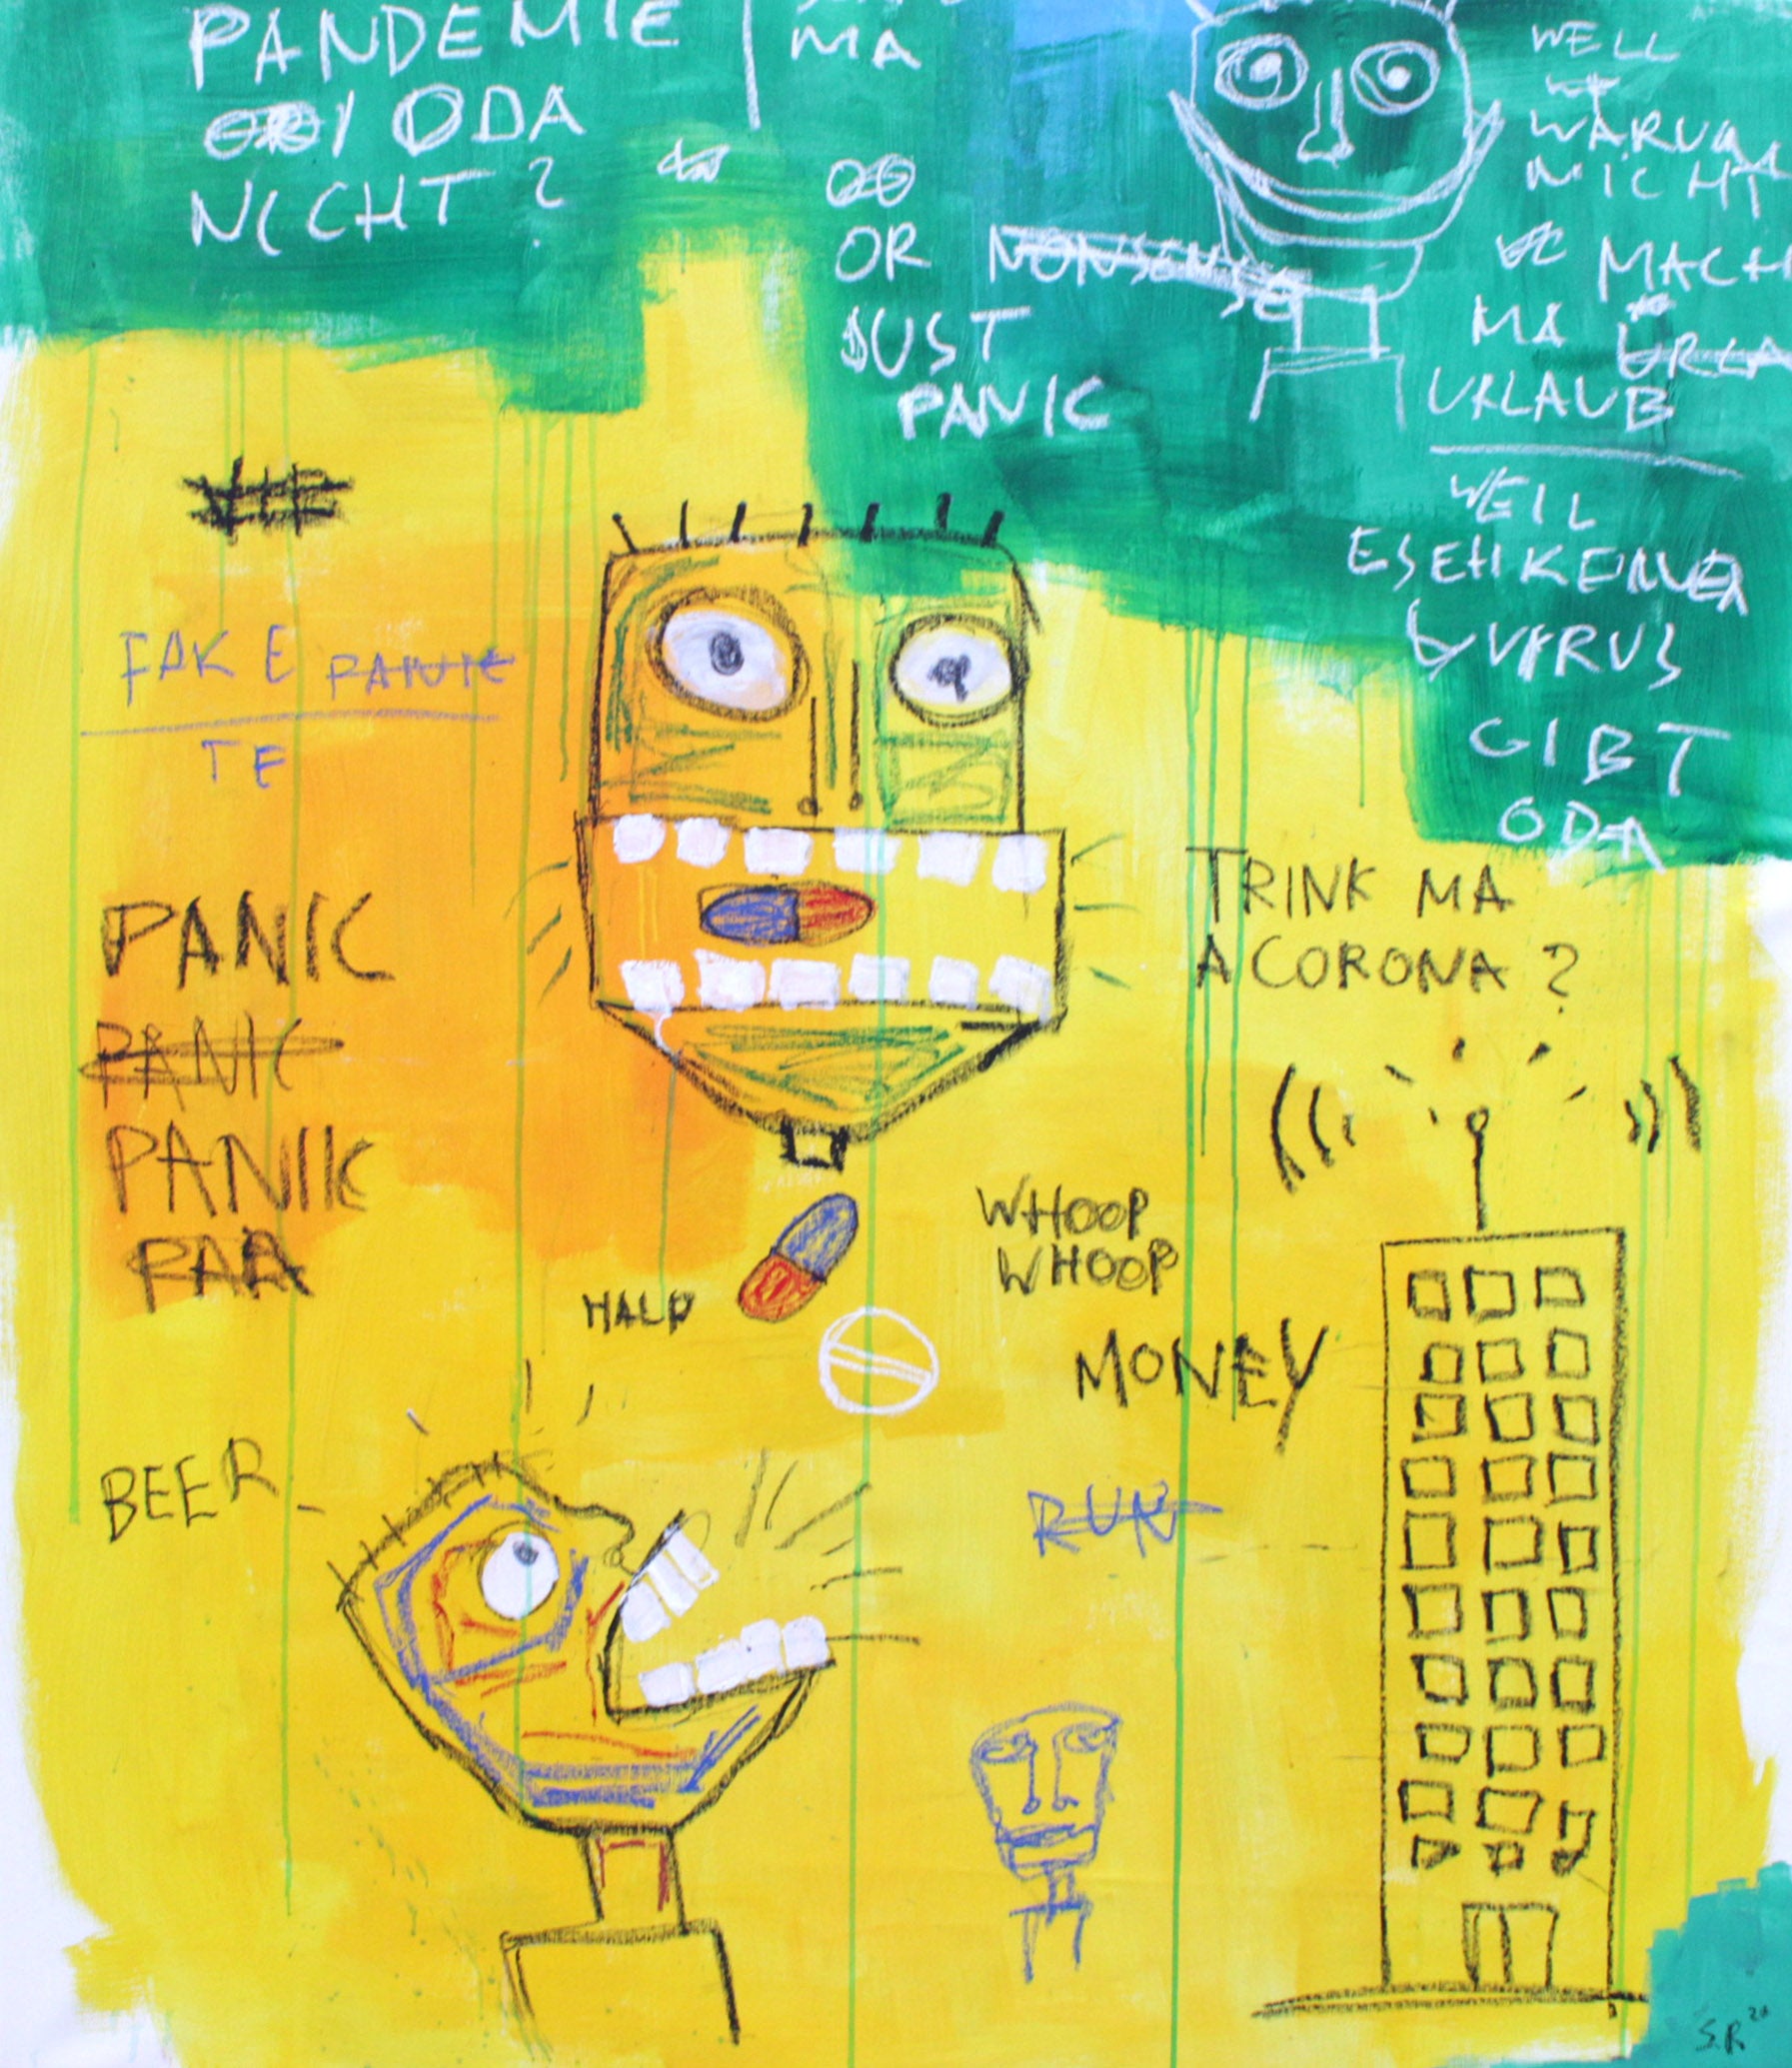 PANDEMIE
ODA
NICHT?
MA
OR NONSENSE
JUST
PANIC
WELL
WARUM
NICHT
MACH
MA URLA
URLAUB
WEIL
ES EH KEINEN
VIRUS
GIBT
ODA
FAKE PANIC
TE
PANIC
PANIC
PANIK
PAA
TRINK MA
A CORONA?
WHOOP
WHOOP
HALP
MONEY
BEER
RUN
S.R 20